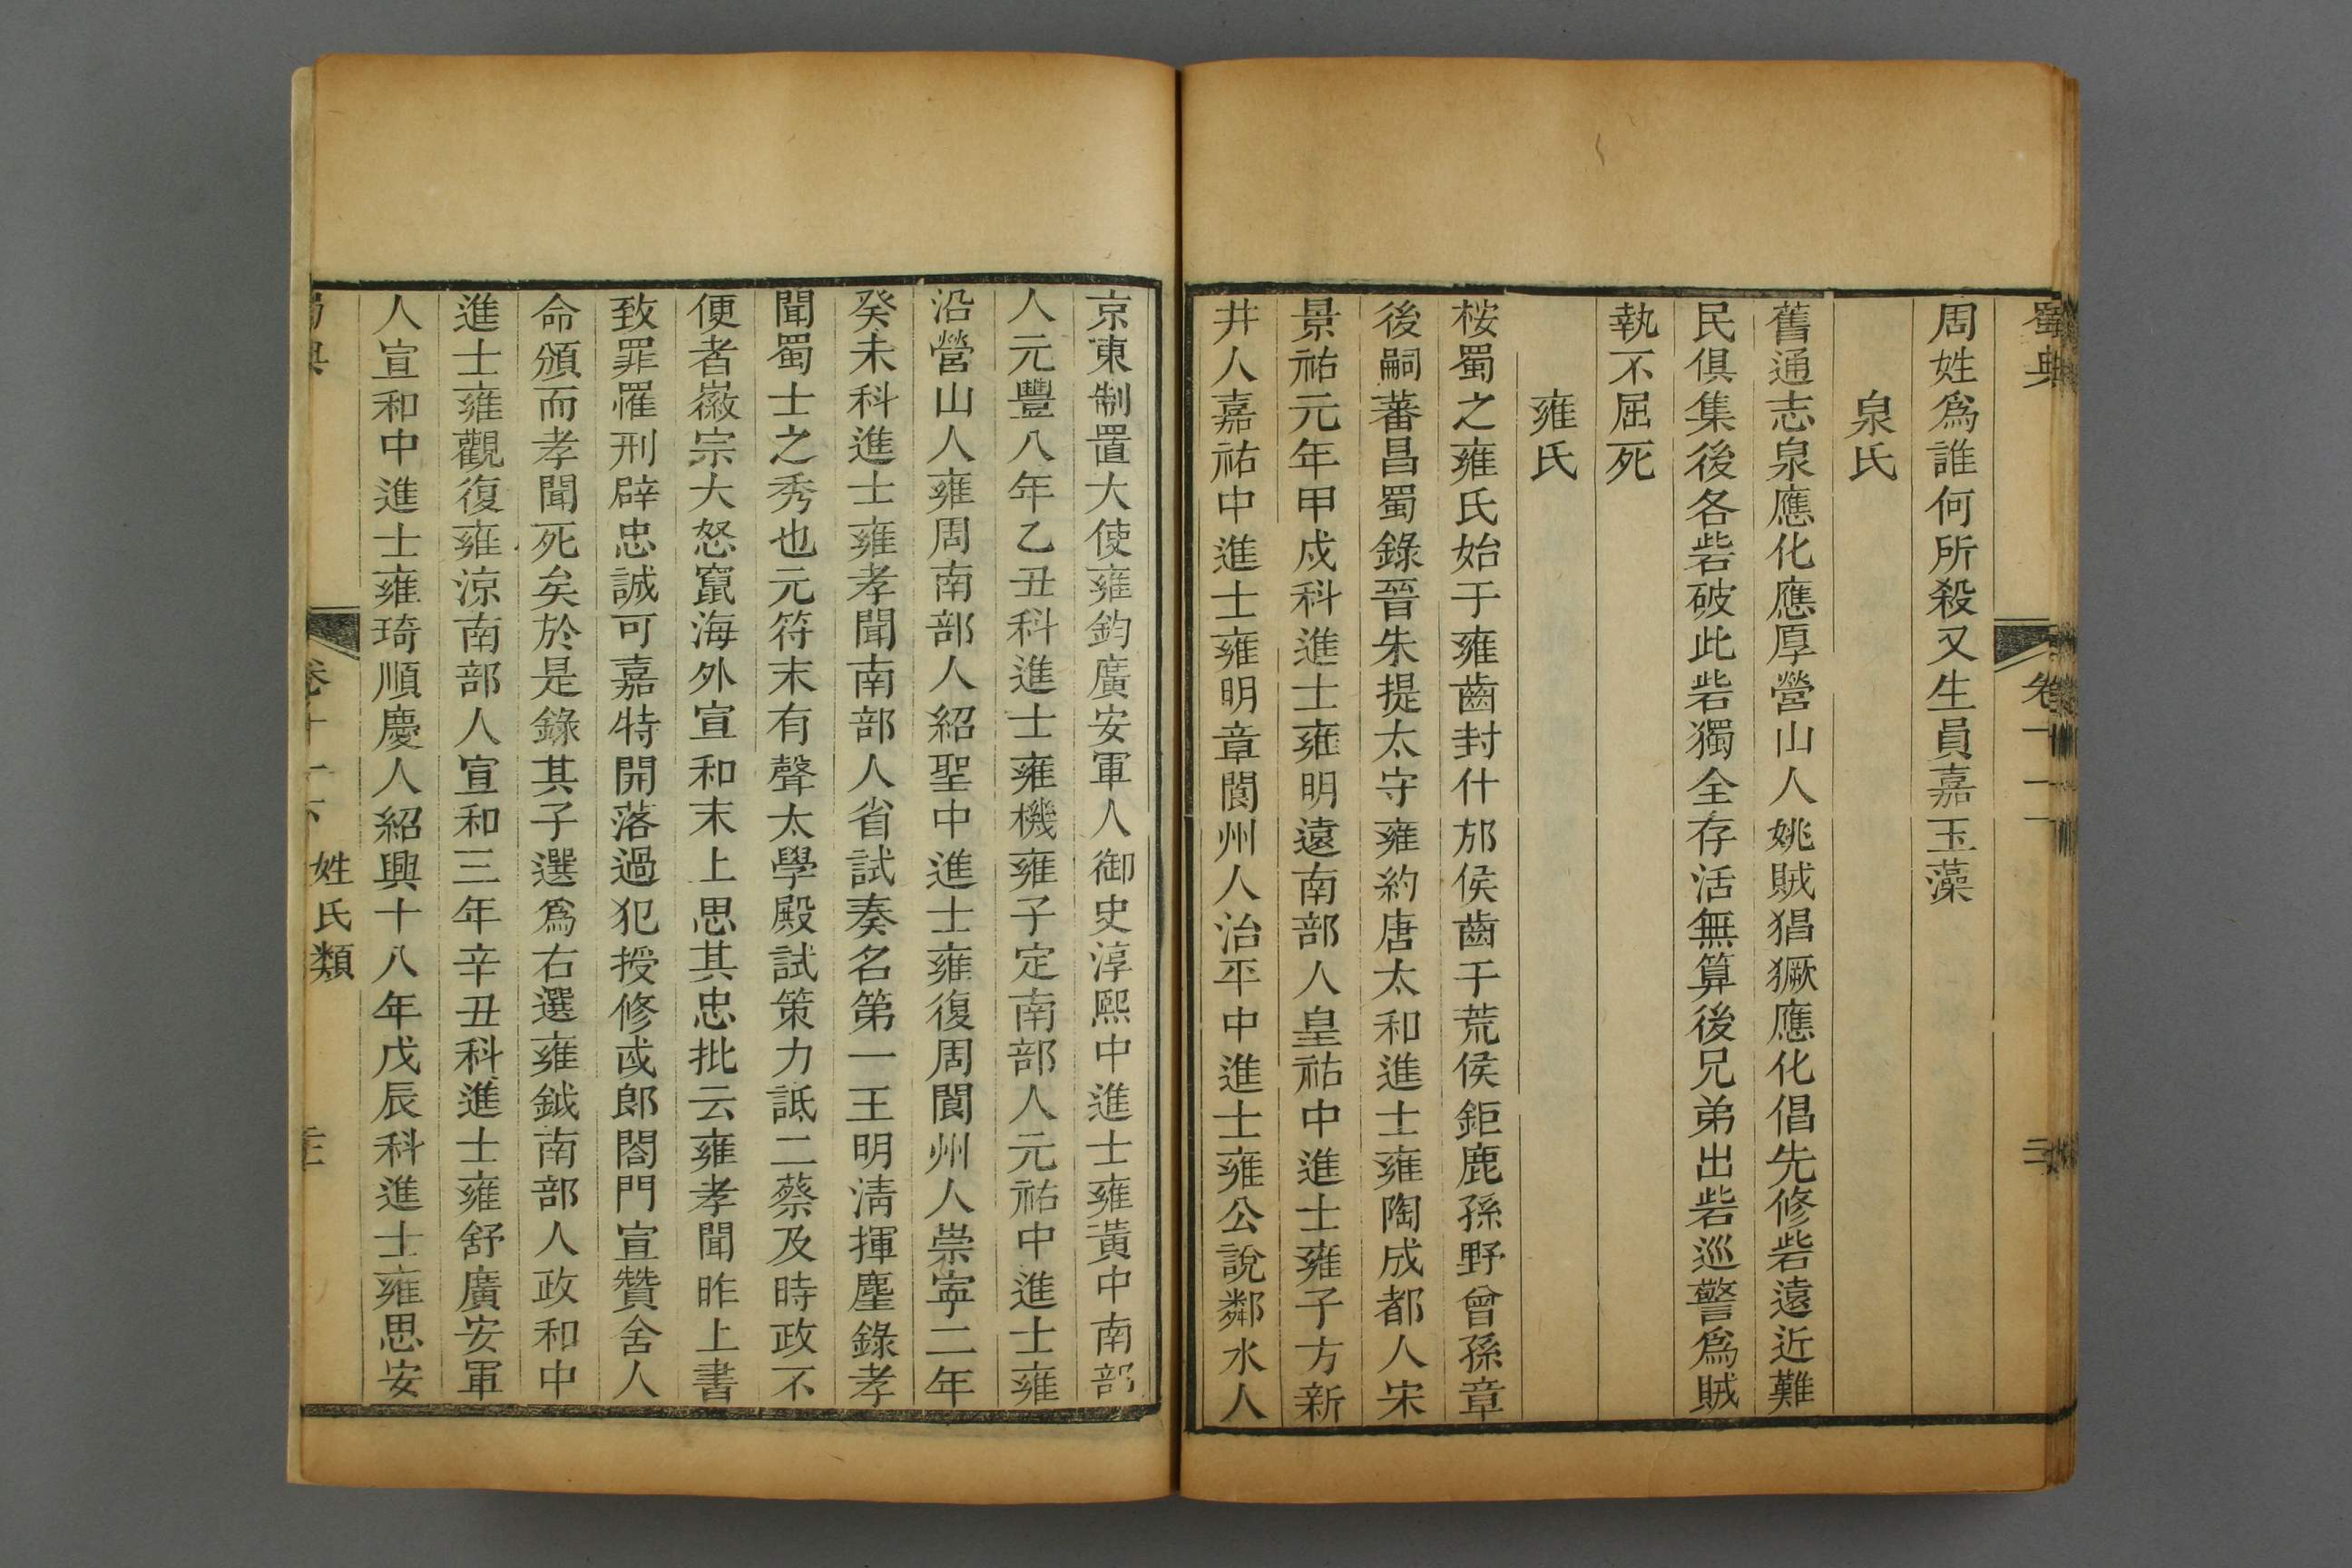 蜀典
卷十一
周姓爲誰何所殺又生員嘉玉藻
泉氏
舊通志泉應化應厚營山人姚賊猖獗應化倡先修砦遠近難
民俱集後各砦破此砦獨全存活無算後兄弟出砦巡警爲賊
執不屈死
雍氏
桉蜀之雍氏始于雍齒封什邡侯齒子荒侯鉅鹿孫野曾孫章
後嗣蕃昌蜀錄晉朱提太守雍約唐太和進士雍陶成都人宋
景祐元年甲戌科進士雍明遠南部人皇祐中進士雍子方新
井人嘉祐中進士雍明章閬州人治平中進士雍公說鄰水人
京東制置大使雍鈞廣安軍人御史淳熙中進士雍黃中南部
人元豐八年乙丑科進士雍機雍子定南部人元祐中進士雍
沿營山人雍周南部人紹聖中進士雍復周閬州人崇寧二年
癸未科進士雍孝聞南部人省試奏名第一王明淸揮麈錄孝
聞蜀士之秀也元符末有聲太學殿試策力詆二蔡及時政不
便者徽宗大怒竄海外宣和末上思其忠批云雍孝聞昨上書
致罪罹刑辟忠誠可嘉特開落過犯授修武郎閤門宣贊舍人
命頒而孝聞死矣於是錄其子選爲右選雍鉞南部人政和中
進士雍觀復雍涼南部人宣和三年辛丑科進士雍舒廣安軍
人宣和中進士雍琦順慶人紹興十八年戊辰科進士雍思安
姓氏類